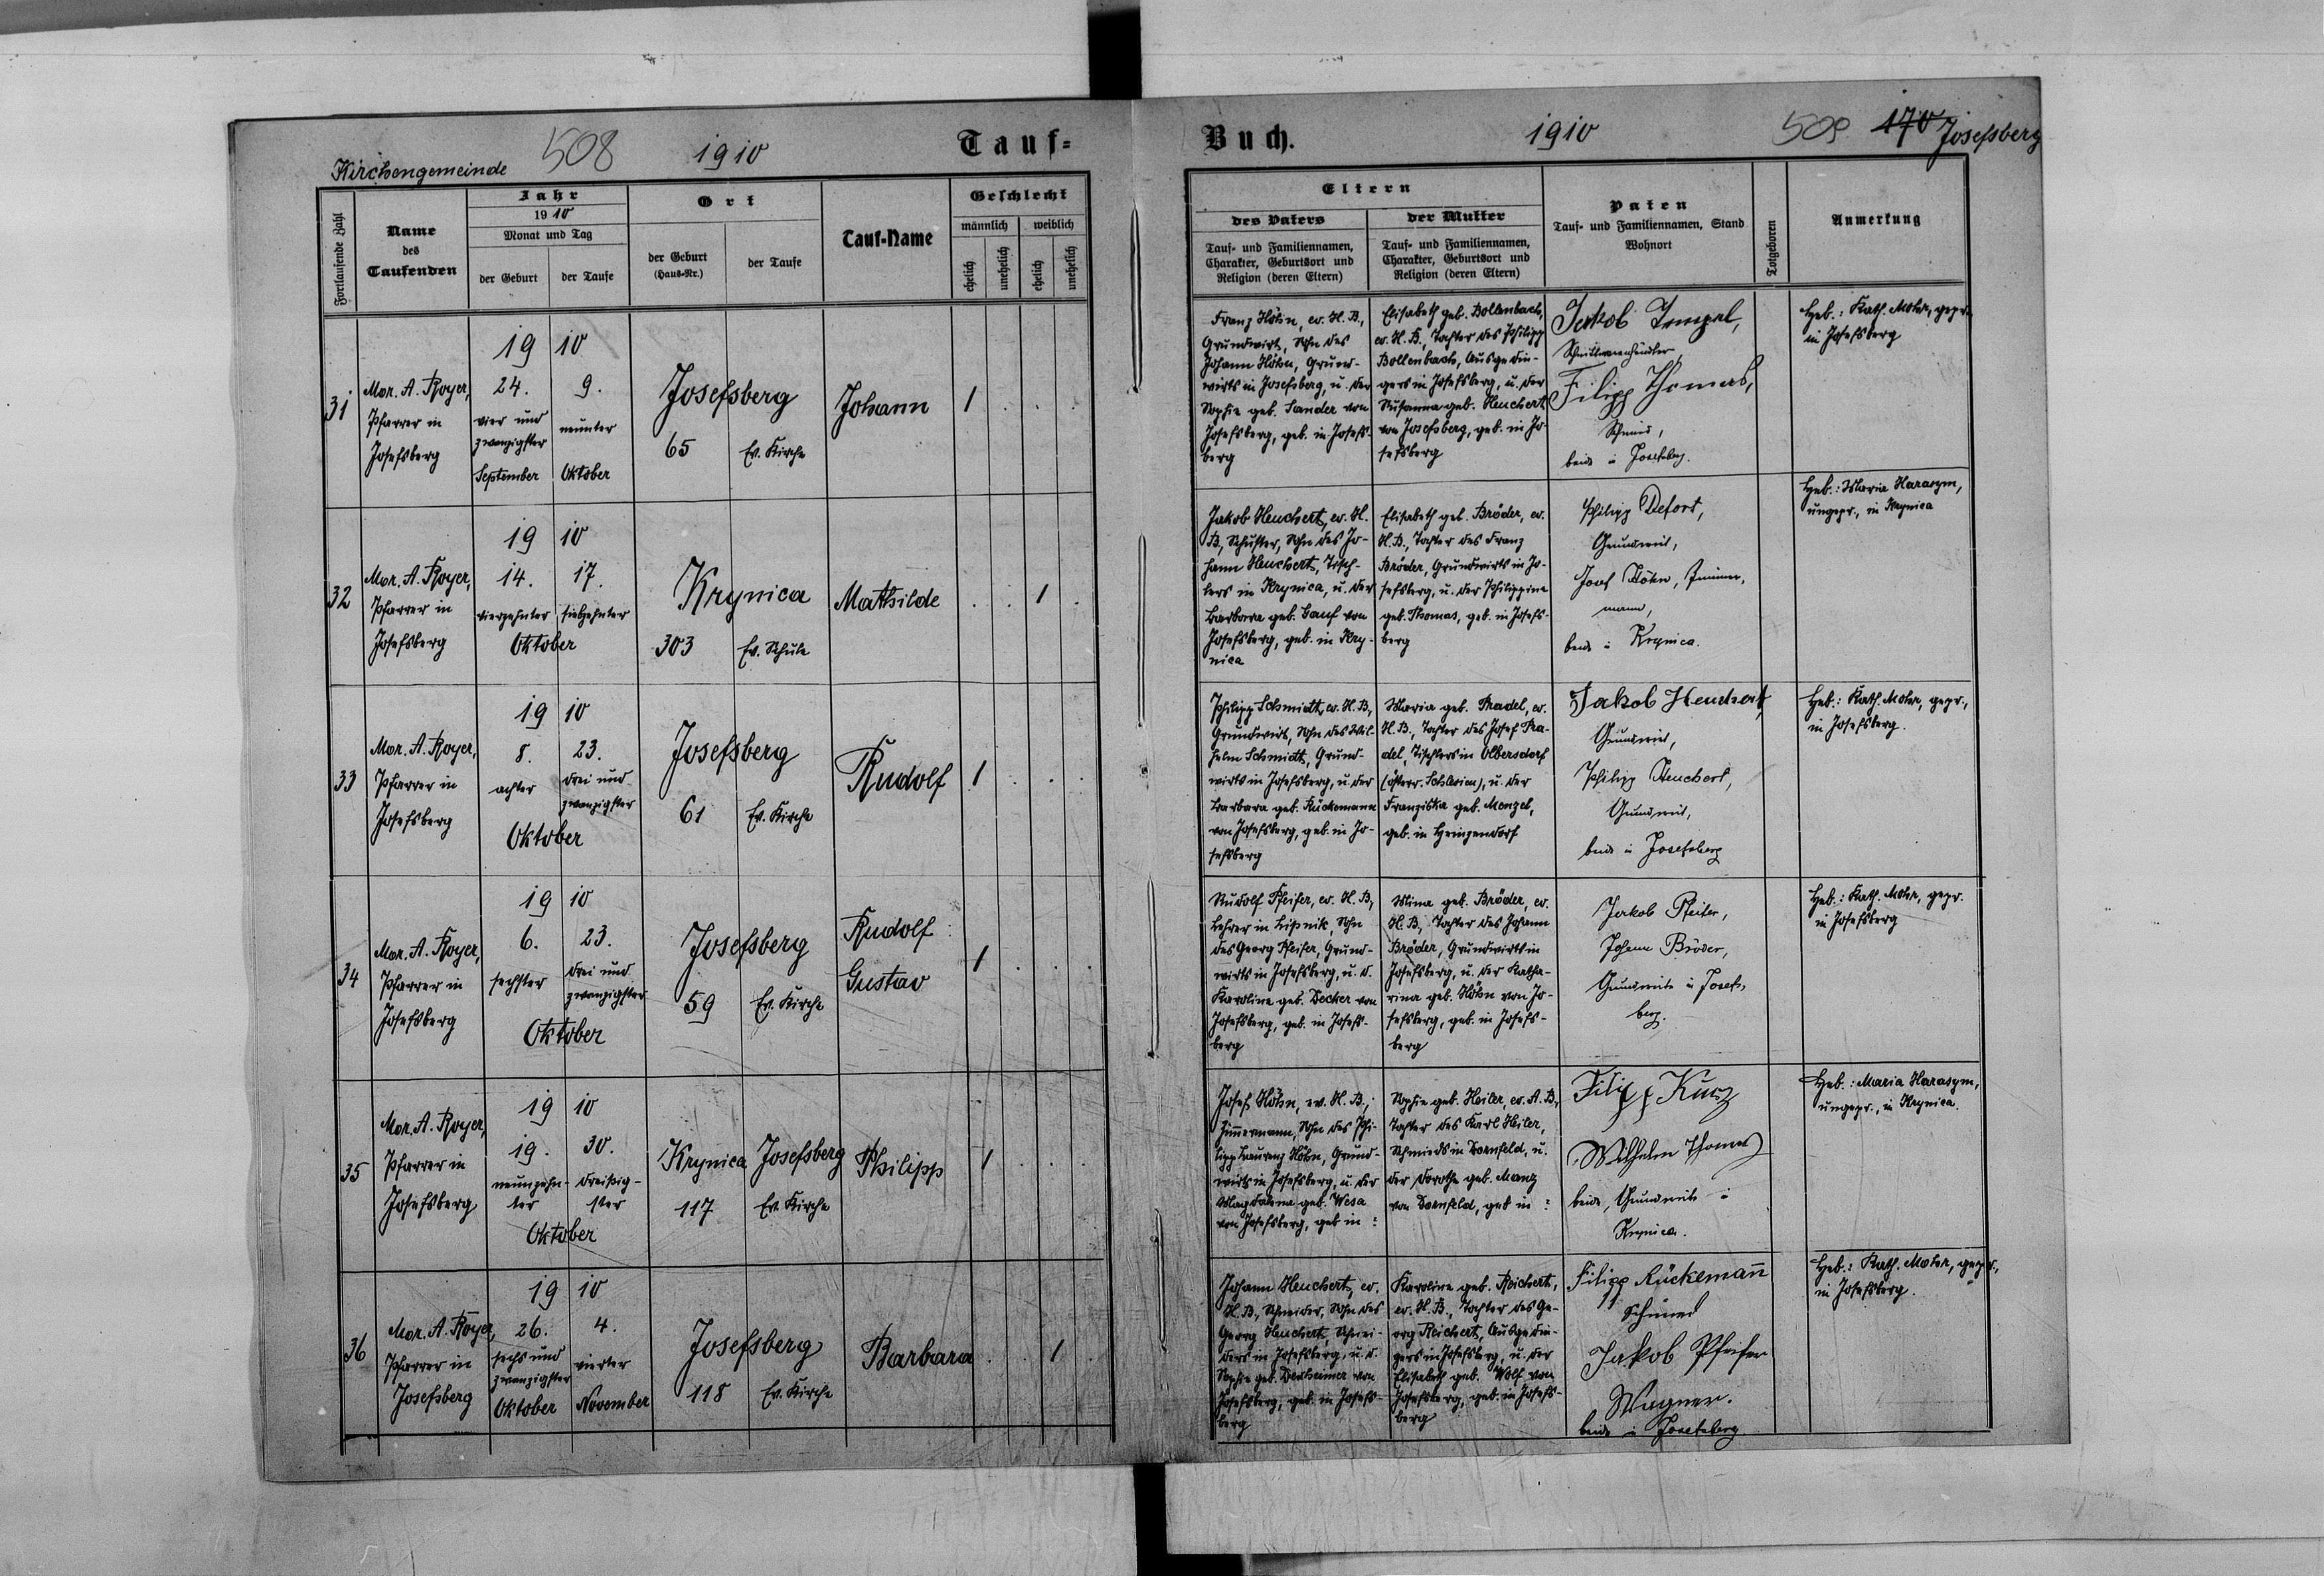 Kirchengemeinde 508 1910 Tauf=
Buch. 1910 509 170 Josefsberg
Fortlaufende Zahl
Name
des
Taufenden
Jahr
1910
Monat und Tag
der Geburt
der Taufe
Ort
der Geburt
(Haus-Nr.)
der Taufe
Tauf-Name
Geschlecht
männlich
weiblich
ehelich
unehelich
ehelich
unehelich
Eltern
des Vaters
Tauf- und Familiennamen,
Charakter, Geburtsort und
Religion (deren Eltern)
der Mutter
Tauf- und Familiennamen,
Charakter, Geburtsort und
Religion (deren Eltern)
Paten
Tauf- und Familiennamen, Stand
Wohnort
Totgeboren
Anmerkung
31
Mor. A. Royer,
Pfarrer in
Josefsberg
19 10
24.
vier und
zwanzigster
September
9.
neunter
Oktober
Josefsberg
65
Ev. Kirche
Johann
1
Franz Höhn, ev. H. B.,
Grundwirt, Sohn des
Johann Höhn, Grund-
wirts in Josefsberg, u. der
Sophie geb. Sander von
Josefsberg, geb. in Josefs-
berg
Elisabeth geb. Bollenbach,
ev. H. B., Tochter des Philipp
Bollenbach, Ausgedin-
gers in Josefsberg, u. der
Susanna geb. Heuchert
von Josefsberg, geb. in Jo-
sefsberg
Jakob
Schnittwarenhändler,
Filipp Thomas,
Schmied,
beide in Josefsberg.
Heb.: Kath. Mohr, gepr.,
in Josefsberg
32
Mor. A. Royer,
Pfarrer in
Josefsberg
19 10
14.
vierzehnter
17.
siebzehnter
Oktober
Krynica
303
Ev. Schule
Mathilde
1
Jakob Heuchert, ev. H.
B., Schuster, Sohn des Jo-
hann Heuchert, Tisch-
lers in Krynica, u. der
Barbara geb. Lauf von
Josefsberg, geb. in Kry-
nica
Elisabeth geb. Bröder, ev.
H. B., Tochter des Franz
Bröder, Grundwirts in Jo-
sefsberg, u. der Philippine
geb. Thomas, geb. in Josefs-
berg
Philipp Defort,
Grundwirt,
Josef Höhn, Zimmer-
mann,
beide in Krynica.
Heb.: Maria Harasym,
ungepr., in Krynica
33
Mor. A. Royer,
Pfarrer in
Josefsberg
19 10
8.
achter
23.
drei und
zwanzigster
Oktober
Josefsberg
61
Ev. Kirche
Rudolf
1
Philipp Schmidt, ev. H. B.,
Grundwirt, Sohn des Wil-
helm Schmidt, Grund-
wirts in Josefsberg, u. der
Barbara geb. Rückemann
von Josefsberg, geb. in Jo-
sefsberg
Maria geb. Pradel, ev.
H. B., Tochter des Josef Pra-
del, Tischlers in Olbersdorf
(österr. Schlesien), u. der
Franziska geb. Menzel,
geb. in Heinzendorf
Jakob Heuchert,
Grundwirt,
Philipp Heuchert,
Grundwirt,
beide in Josefsberg
Heb.: Kath. Mohr, gepr.,
in Josefsberg.
34
Mor. A. Royer,
Pfarrer in
Josefsberg
19 10
6.
sechster
23.
drei und
zwanzigster
Oktober
Josefsberg
59
Ev. Kirche
Rudolf
Gustav
1
Rudolf Pfeifer, ev. H. B.,
Lehrer in Lißnik, Sohn
des Georg Pfeifer, Grund-
wirts in Josefsberg, u. d.
Karoline geb. Decker von
Josefsberg, geb. in Josefs-
berg
Mina geb. Bröder, ev.
H. B., Tochter des Johann
Bröder, Grundwirts in
Josefsberg, u. der Katha-
rina geb. Höhn von Jo-
sefsberg, geb. in Josefs-
berg
Jakob Pfeifer,
Johann Bröder,
Grundwirte in Josefs-
berg.
Heb.: Kath. Mohr, gepr.
in Josefsberg
35
Mor. A. Royer,
Pfarrer in
Josefsberg
19 10
19.
neunzehn-
ter
30.
dreißig-
ster
Oktober
Krynica
117
Josefsberg
Ev. Kirche
Philipp
1
Josef Höhn, ev. H. B.,
Zimmermann, Sohn des Phi-
lipp Laurenz Höhn, Grund-
wirts in Josefsberg, u. der
Magdalena geb. Wesa
von Josefsberg, geb. in :
Sophie geb. Heiler, ev. A. B.,
Tochter des Karl Heiler,
Schmieds in Dornfeld, u.
der Dorothe geb. Manz
von Dornfeld, geb. in :
Filipp Kurz
Wilhelm Thomas
beide, Grundwirte in
Krynica.
Heb.: Maria Harasym,
ungepr., in Krynica.
36
Mor. A. Royer,
Pfarrer in
Josefsberg
19 10
26.
sechs und
zwanzigster
Oktober
4.
vierter
November
Josefsberg
118
Ev. Kirche
Barbara
1
Johann Heuchert, ev.
H. B., Schneider, Sohn des
Georg Heuchert, Schnei-
ders in Josefsberg, u. d.
Sophie geb. Dexheimer von
Josefsberg, geb. in Josefs-
berg
Karoline geb. Reichert,
ev. H. B., Tochter des Ge-
org Reichert, Ausgedin-
gers in Josefsberg, u. der
Elisabeth geb. Wolf von
Josefsberg, geb. in Josefs-
berg
Filipp Rückemann
Schmied
Jakob Pfeifer
Wagner.
beide in Josefsberg
Heb.: Kath. Mohr, gepr.,
in Josefsberg.